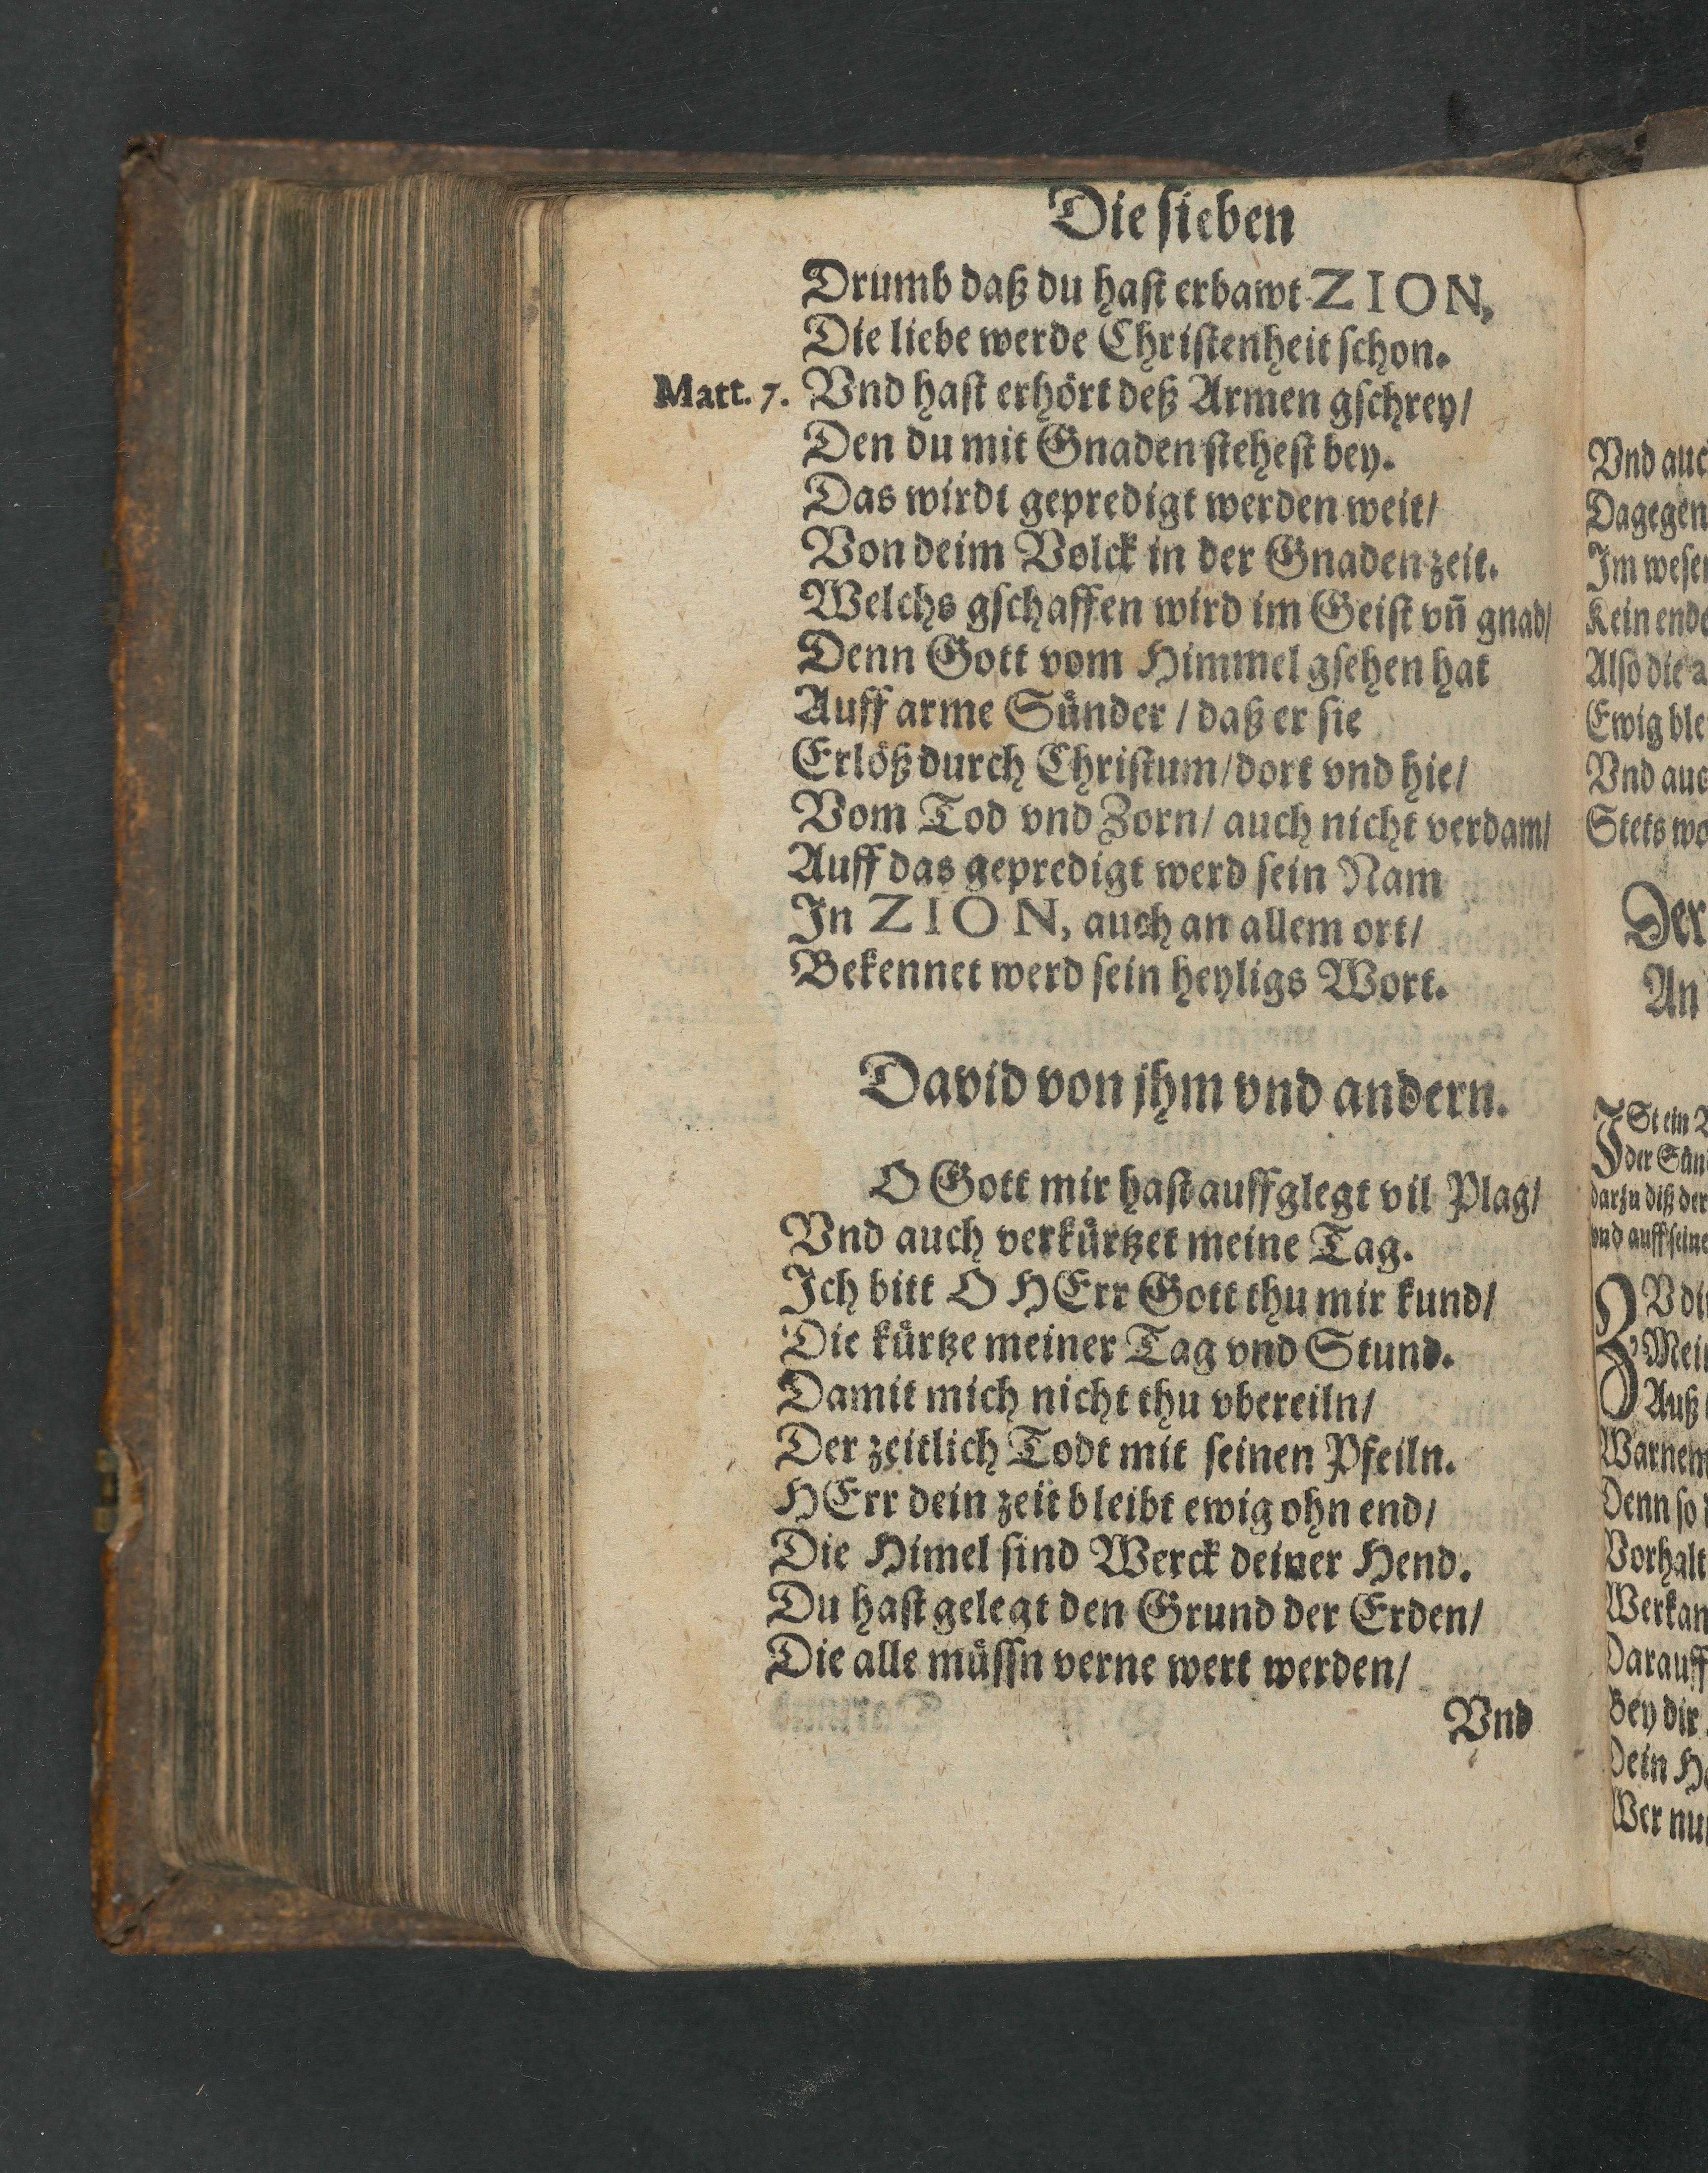 Die sieben
Drumb daß du hast erbawt ZION,
Die liebe werde Christenheit schon.
Matt. 7. Vnd hast erhört deß Armen gschrey/
Den du mit Gnaden stehest bey.
Das wirdt gepredigt werden weit/
Von deim Volck in der Gnaden zeit.
Welchs gschaffen wird im Geist vñ gnad/
Denn Gott vom Himmel gsehen hat
Auff arme Sünder / daß er sie
Erlöß durch Christum/dort vnd hie/
Vom Tod vnd Zorn/ auch nicht verdam/
Auff das gepredigt werd sein Nam
In ZION, auch an allem ort/
Bekennet werd sein heyligs Wort.
David von jhm vnd andern.
O Gott mir hast auffglegt vil Plag/
Vnd auch verkürtzet meine Tag.
Ich bitt O HErr Gott thu mir kund/
Die kürtze meiner Tag vnd Stund.
Damit mich nicht thu vbereiln/
Der zeitlich Todt mit seinen Pfeiln.
HErr dein zeit bleibt ewig ohn end/
Die Himel sind Werck deiner Hend.
Du hast gelegt den Grund der Erden/
Die alle müssn verne wert werden/
Vnd
Vnd auc
Dagegen
Im wese
Kein ende
Also die
Ewig ble
Vnd auc
Stets wo
Der
An
ISt ein
der Sün
darzu diß der
vnd auff seine
ZV di
Mei
Auß
Warnem
Denn so
Vorhalt
Werkan
Darauff
Bey dir
Dein H
Wer nu